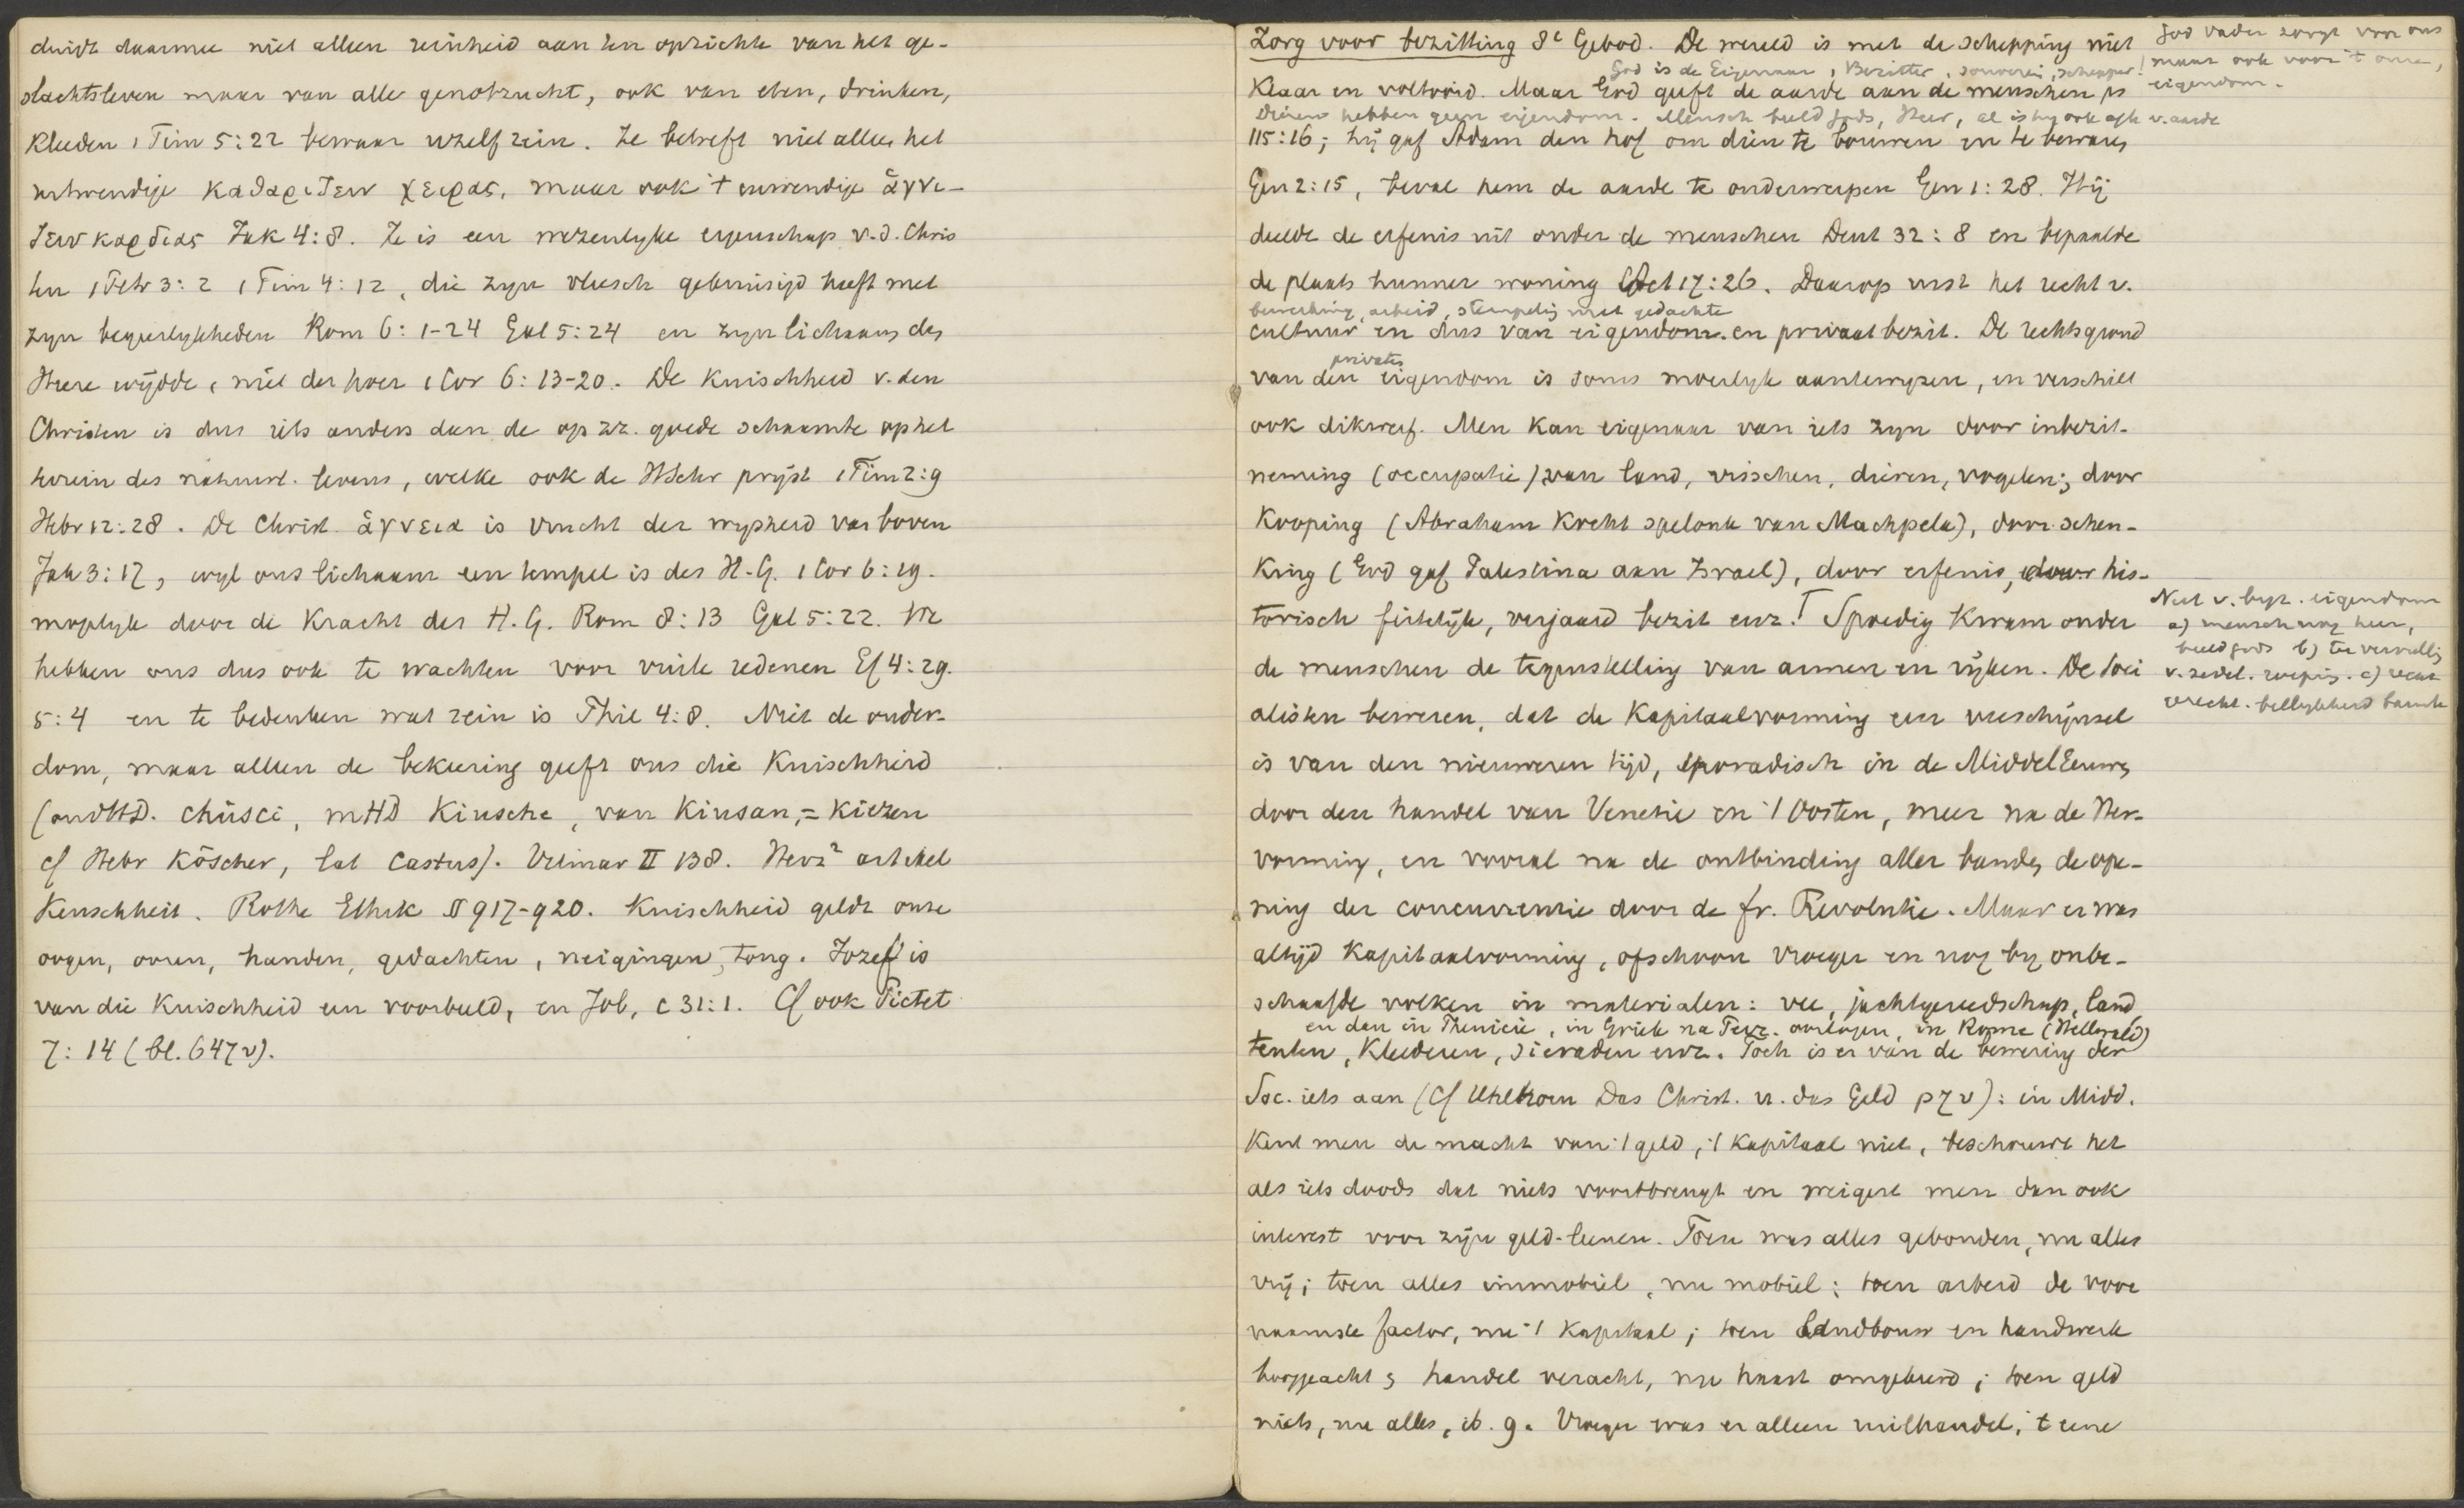 duidt daarmee niet alleen reinheid aan ten opzichte van het ge-
slachtsleven maar van alle genotzucht, ook van eten, drinken,
kleeden 1 Tim 5:22 bewaar uzelf rein. Ze betreft niet alleen het
uitwendige καθαριζειν χειρας, maar ook 't inwendige ἁγνι-
ζειν καρδιας Jak 4:8. Ze is een wezenlyke eigenschap v.d. Chris
ten 1 Petr 3:2 1 Tim 4:12, die zyn vleesch gekruisigd heeft met
zyn begeerlykheden Rom 6:1-24 Gal 5:24 en zyn lichaam des
Heere wijdde, niet der hoer 1 Cor 6:13-20. De Kuischheid v. den
Christen is dus iets anders dan de op zz. goede schaamte op het
terrein des natuurl. levens, welke ook de HSchr prijst 1 Tim 2:9
Hebr 12:28. De Christ. ἁγνεια is vrucht der wysheid van boven
Jak 3:17, wyl ons lichaam een tempel is des H.G. 1 Cor 6:19.
mogelyk door de Kracht des H.G. Rom 8:13 Gal 5:22. We
hebben ons dus ook te wachten voor vuile redenen Ef 4:29.
5:4 en te bedenken wat rein is Phil 4:8. Niet de ouder-
dom, maar alleen de bekeering geeft ons die Kuischheid
(oudHD. chûsci, mHD Kiusche, van Kiusan, = Kiezen
cf Hebr Köscher, lat castus). Vilmar II 138. Herz² artikel
Keuschheit. Rothe Ethik §§ 917-920. Kuischheid geldt onze
oogen, ooren, handen, gedachten, neigingen, tong. Jozef is
van die Kuischheid een voorbeeld, en Job, c 31:1. Cf ook Pictet
7:14 (bl. 647 v).
Zorg voor bezitting 8e Gebod. De wereld is met de schepping niet
God vader zorgt voor ons
maar ook voor 't onze,
eigendom.
God is de Eigenaar, Bezitter, souverein, schepper!
Klaar en voltooid. Maar God geeft de aarde aan de menschen ps
Dieren hebben geen eigendom. Mensch beeld Gods, Heer, al is hy ook afh v. aarde
115:16; hij gaf Adam den hof om dien te bouwen en te bewaren
Gen 2:15, beval hem de aarde te onderwerpen Gen 1:28. Hij
deelde de erfenis uit onder de menschen Deut 32:8 en bepaalde
de plaats hunner woning Act 17:26. Daarop rust het recht v.
bewerking, arbeid, stempelig met gedachte
cultuur en dus van eigendom. en privaat bezit. De rechtsgrond
privaten
van den eigendom is soms moeilyk aantewyzen, en verschilt
ook dikwerf. Men kan eigenaar van iets zyn door inbezit-
neming (occupatie) van land, visschen, dieren, vogelen; door
Kooping (Abraham Kocht spelonk van Machpela), door schen-
King (God gaf Palestina aan Israel), door erfenis, door his-
torisch feitelijk, verjaard bezit enz.⌈ Spoedig kwam onder
Nut v. byz. eigendom
a) mensch nog heer,
beeld Gods b) ter vervulling
v. zedel. roeping. c)
de menschen de tegenstelling van armen en rijken. De Soci
alisten beweren, dat de Kapitaalvorming een verschijnsel
is van den nieuweren tijd, sporadisch in de MiddelEeuwen
door den handel van Venetie en 't Oosten, meer na de Her-
vorming, en vooral na de ontbinding aller banden, de ope-
ning der concurrentie door de fr. Revolutie. Maar er was
altijd Kapitaalvorming, ofschoon vroeger en nog by onbe-
schaafde volken in materialen: vee, jachtgereedschap, land,
en dan in Phenicië, in Griek na Perz. oorlogen, in Rome (Wellereld)
tenten, Kleederen, sieraden enz. Toch is er van de bewering der
Soc. iets aan (Cf Uhlhorn Das Christ. u. das Geld p 7 v): in Midd.
Kent men de macht van 't geld, 't Kapitaal niet, beschouwt het
als iets doods dat niets voortbrengt en weigert men dan ook
interest voor zijn geld-leenen. Toen was alles gebonden, nu alles
vrij; toen alles immobiel, nu mobiel; toen arbeid de voor
naamste factor, nu 't Kapitaal; toen landbouw en handwerk
hooggeacht, handel veracht, nu haast omgekeerd; toen geld
niets, nu alles, ib. 9. Vroeger was er alleen ruilhandel, 't eene